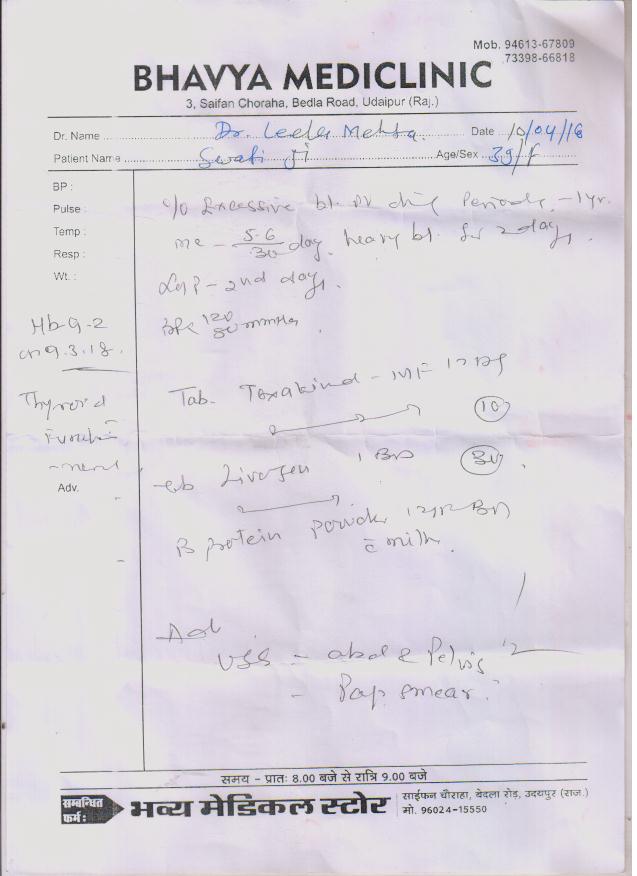 Mob. 94613-67809
73398-66818
BHAVYA MEDICLINIC
3, Saifan Choraha, Bedla Road, Udaipur (Raj.)
Dr. Name Dr. Leela Mehta Date 10/04/18
Patient Name Swati Ji Age/Sex 39/F
BP :
Pulse :
Temp :
Resp :
Wt. :
c/o Excessive bl. PV Periods - 1yr.
mc - 5-6/30 day. heavy bl. for 2 days.
LMP - 2nd day.
120/80 mmHg
Hb-9.2
on 9.3.18.
Thyroid
Adv.
Tab. - MF 1 TDS
10
Livogen 1 BD
30
B protein Powder BD
c̄ milk.
Adv
USG - abd & Pelvis
- Pap smear.
समय - प्रातः 8.00 बजे से रात्रि 9.00 बजे
सम्बन्धित
फर्म :
भव्य मेडिकल स्टोर
साईफन चौराहा, बेदला रोड़, उदयपुर (राज.)
मो. 96024-15550